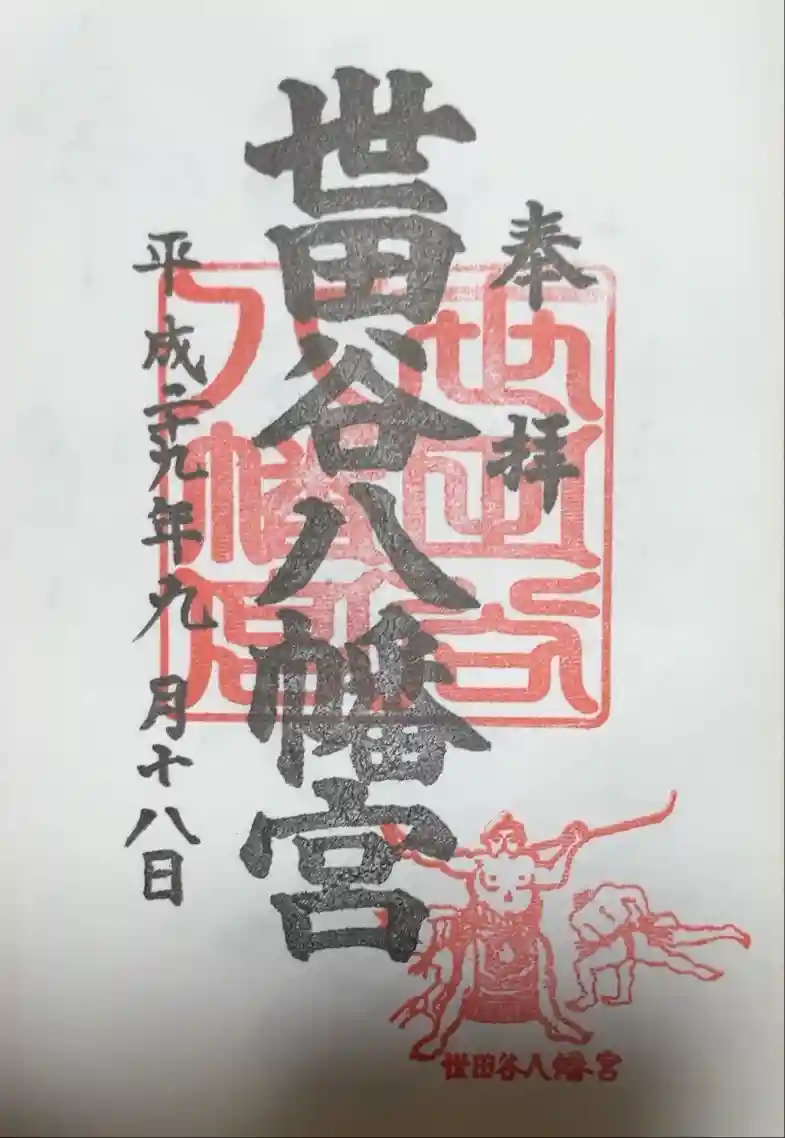 奉拝
世田谷八幡宮
平成二十九年九月十八日
世田谷八幡宮
世田谷八幡宮